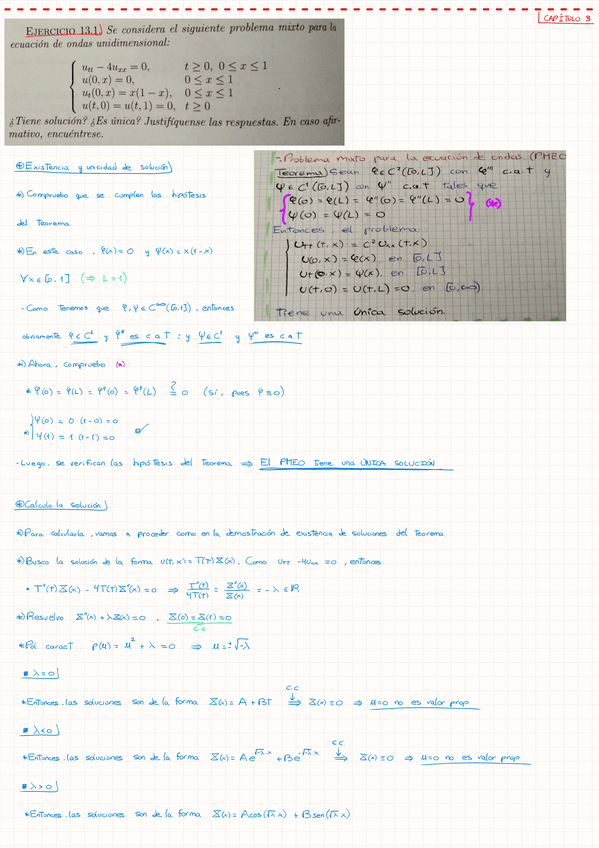 CAPÍTULO 3
EJERCICIO 13.1 Se considera el siguiente problema mixto para la
ecuación de ondas unidimensional:
u_tt − 4u_xx = 0, t ≥ 0, 0 ≤ x ≤ 1
u(0, x) = 0, 0 ≤ x ≤ 1
u_t(0, x) = x(1 − x), 0 ≤ x ≤ 1
u(t, 0) = u(t, 1) = 0, t ≥ 0
¿Tiene solución? ¿Es única? Justifíquense las respuestas. En caso afir-
mativo, encuéntrese.
-. Problema mixto para la ecuación de ondas. (PMEO
Teorema) Sean φ ∈ C²([0,L]) con φ''' c.a.t y
Ψ ∈ C¹([0,L]) con Ψ'' c.a.t tales que
φ(0) = φ(L) = φ''(0) = φ''(L) = 0
Ψ(0) = Ψ(L) = 0 (*)
Entonces, el problema:
U_tt(t,x) = c² U_xx(t,x)
U(0,x) = φ(x), en [0,L]
U_t(0,x) = Ψ(x), en [0,L]
U(t,0) = U(t,L) = 0, en [0,∞)
Tiene una única solución.
Existencia y unicidad de solución
*) Compruebo que se cumplen las hipótesis
del Teorema.
*) En este caso, φ(x) = 0 y Ψ(x) = x(1-x)
∀x ∈ [0,1] (⇒ L=1)
- Como tenemos que φ, Ψ ∈ C^∞([0,1]), entonces
obviamente φ ∈ C² y φ''' es c.a.t ; y Ψ ∈ C¹ y Ψ'' es c.a.t
*) Ahora, compruebo (*)
* φ(0) = φ(L) = φ''(0) = φ''(L) ?= 0 (sí, pues φ ≡ 0)
*) Ψ(0) = 0·(1-0) = 0
Ψ(1) = 1·(1-1) = 0
- Luego, se verifican las hipótesis del Teorema ⇒ El PMEO tiene una ÚNICA SOLUCIÓN
Calculo la solución
*) Para calcularla, vamos a proceder como en la demostración de existencia de soluciones del Teorema.
*) Busco la solución de la forma u(t,x) = T(t)X(x). Como u_tt - 4u_xx = 0, entonces
• T''(t)X(x) - 4T(t)X''(x) = 0 ⇒ T''(t)/4T(t) = X''(x)/X(x) = -λ ∈ ℝ
*) Resuelvo X''(x) + λX(x) = 0, X(0) = X(1) = 0
c.c
* Pol. caract: p(μ) = μ² + λ = 0 ⇒ μ = ±√-λ
λ=0
* Entonces, las soluciones son de la forma X(x) = A + Bx ⇒ X(x) ≡ 0 ⇒ μ=0 no es valor prop
c.c
λ<0
* Entonces, las soluciones son de la forma X(x) = Ae^(√-λ x) + Be^(-√-λ x) ⇒ X(x) ≡ 0 ⇒ μ=0 no es valor prop
c.c
λ>0
* Entonces, las soluciones son de la forma X(x) = A cos(√λ x) + B sen(√λ x)